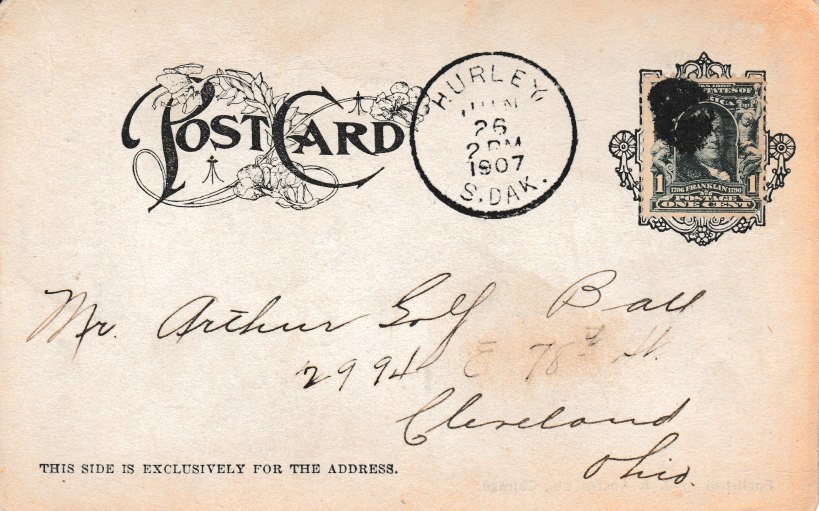 POST CARD
HURLEY,
JUN
26
2 PM
1907
S. DAK.
STATES OF
1 1706 FRANKLIN 1790 1
POSTAGE
ONE CENT
Mr. Arthur Golf Ball
2994 E 78th St.
Cleveland
Ohio.
THIS SIDE IS EXCLUSIVELY FOR THE ADDRESS.